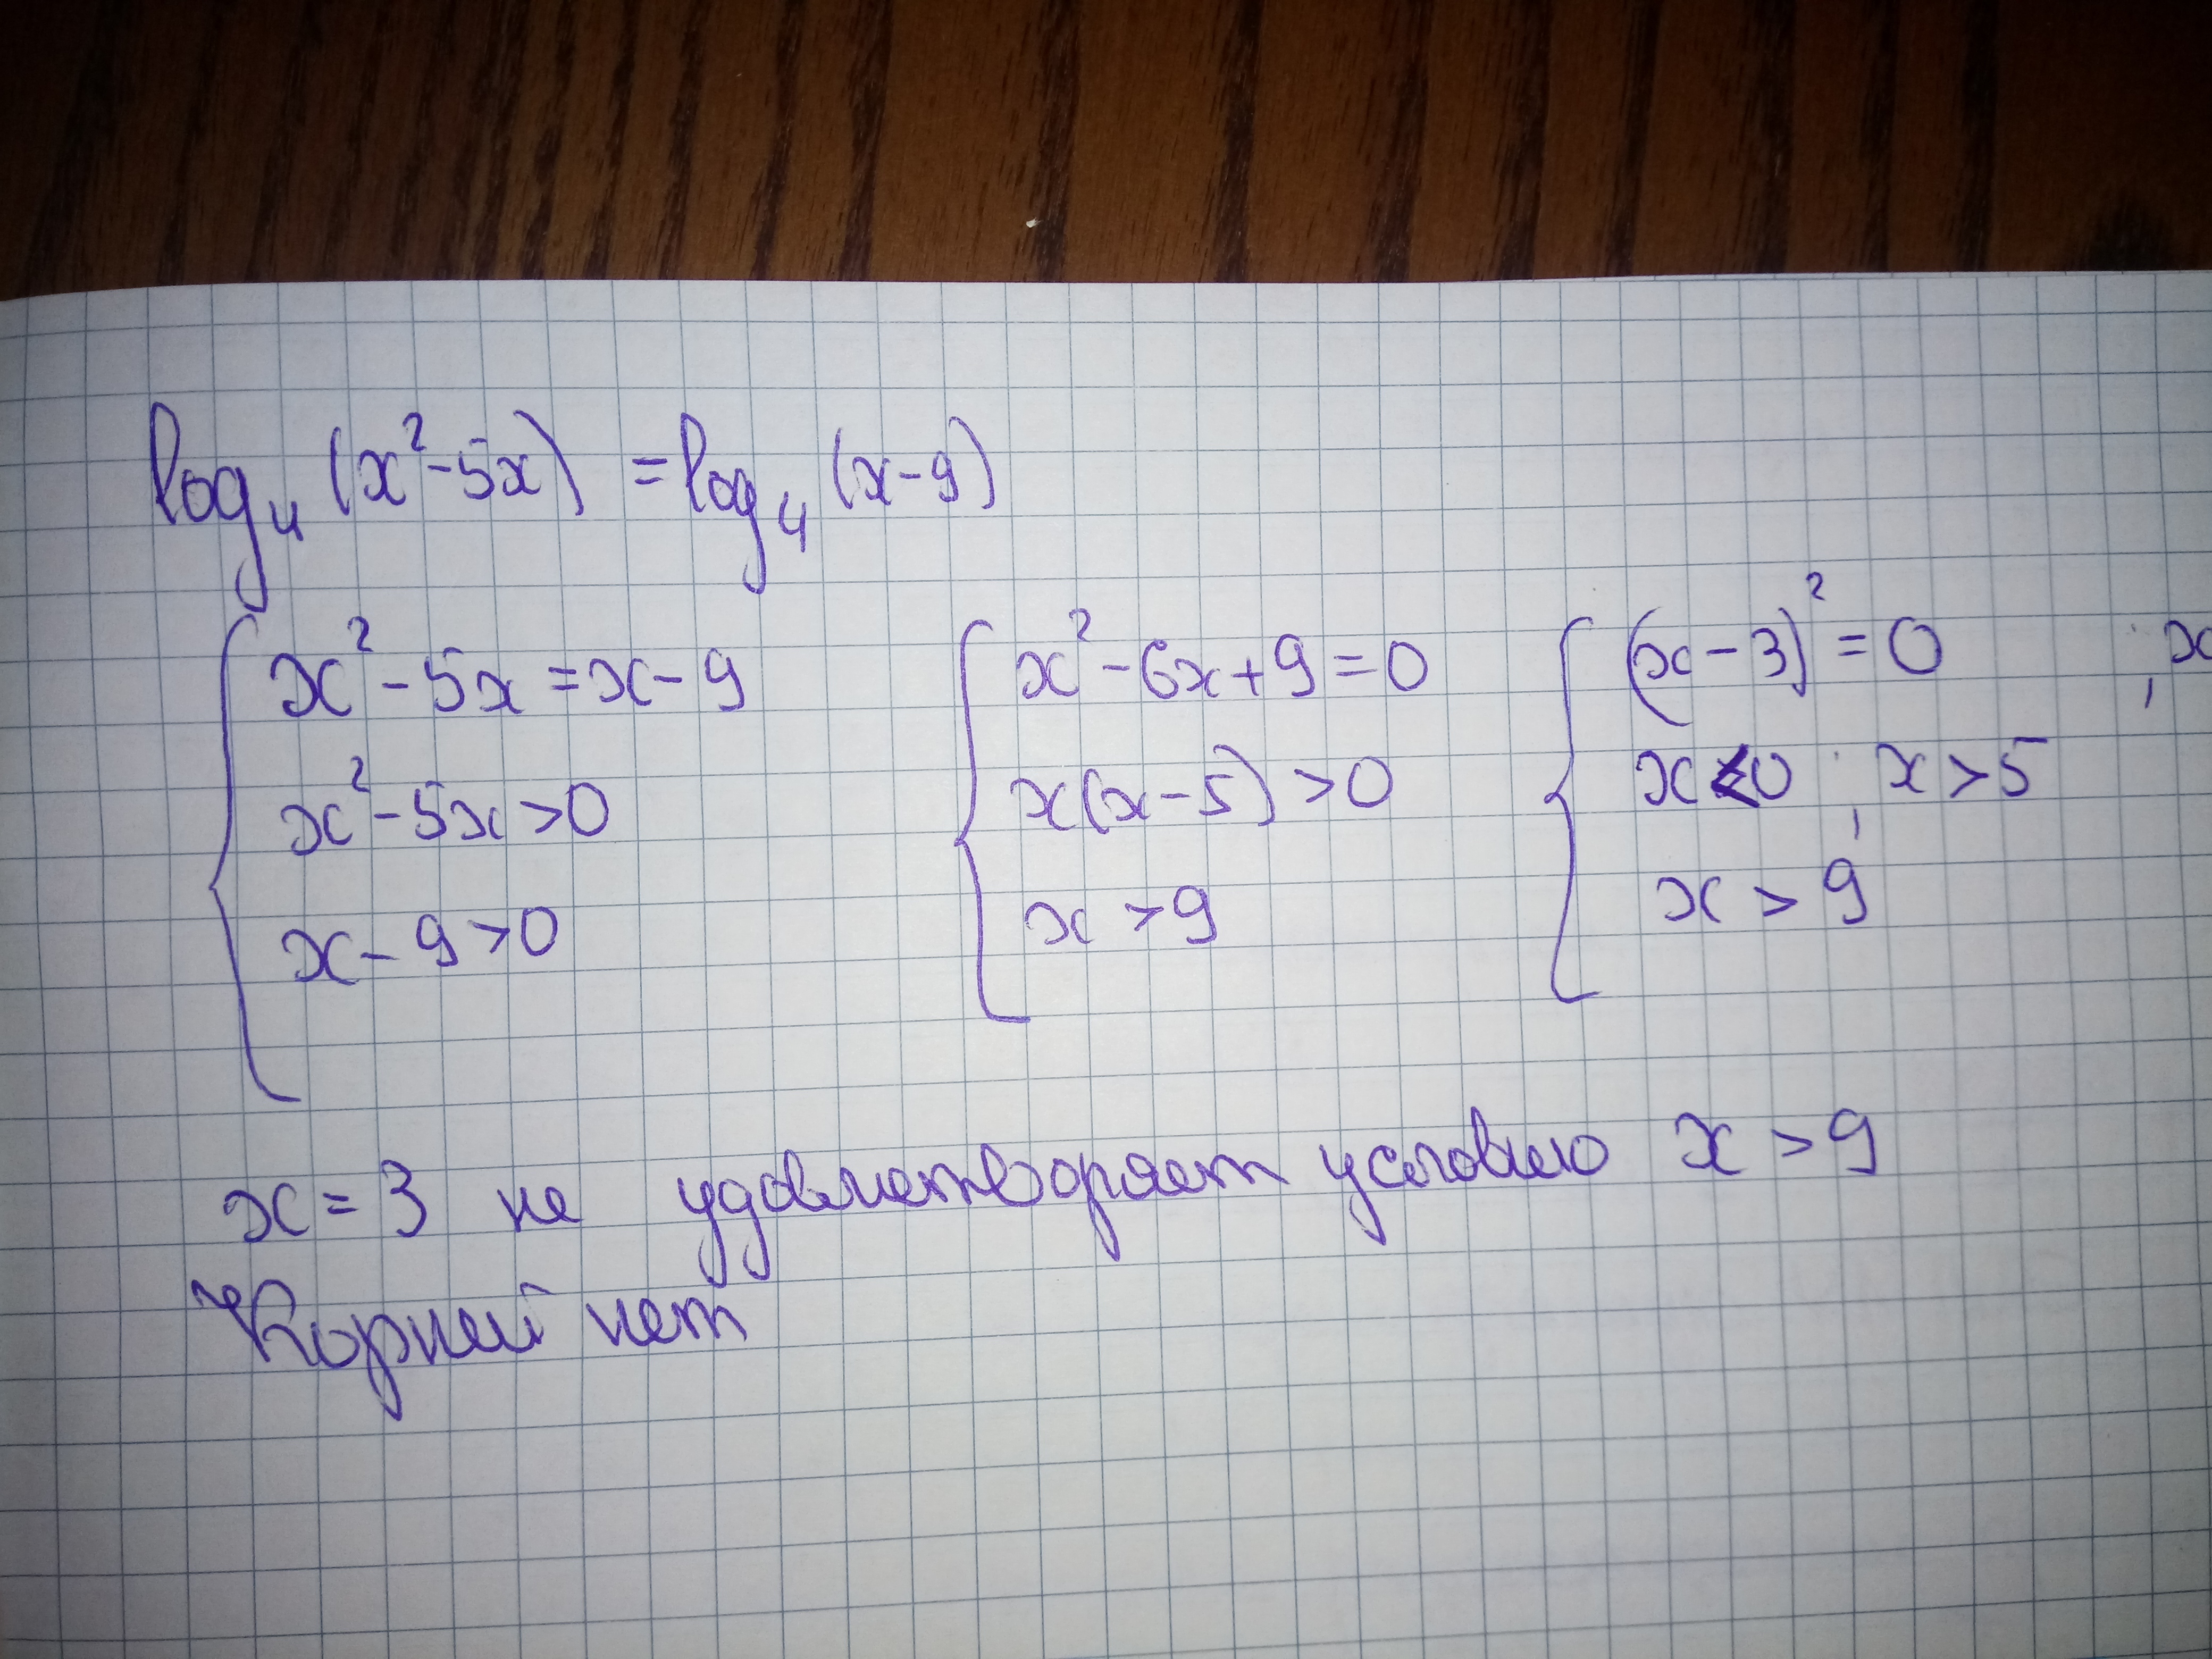 log₄ (x²-5x) = log₄ (x-9)
{ x²-5x=x-9 { x²-6x+9=0 { (x-3)²=0 , x
x²-5x>0 x(x-5)>0 x<0 , x>5
x-9>0 x>9 x>9
x=3 не удовлетворяет условию x>9
Корней нет